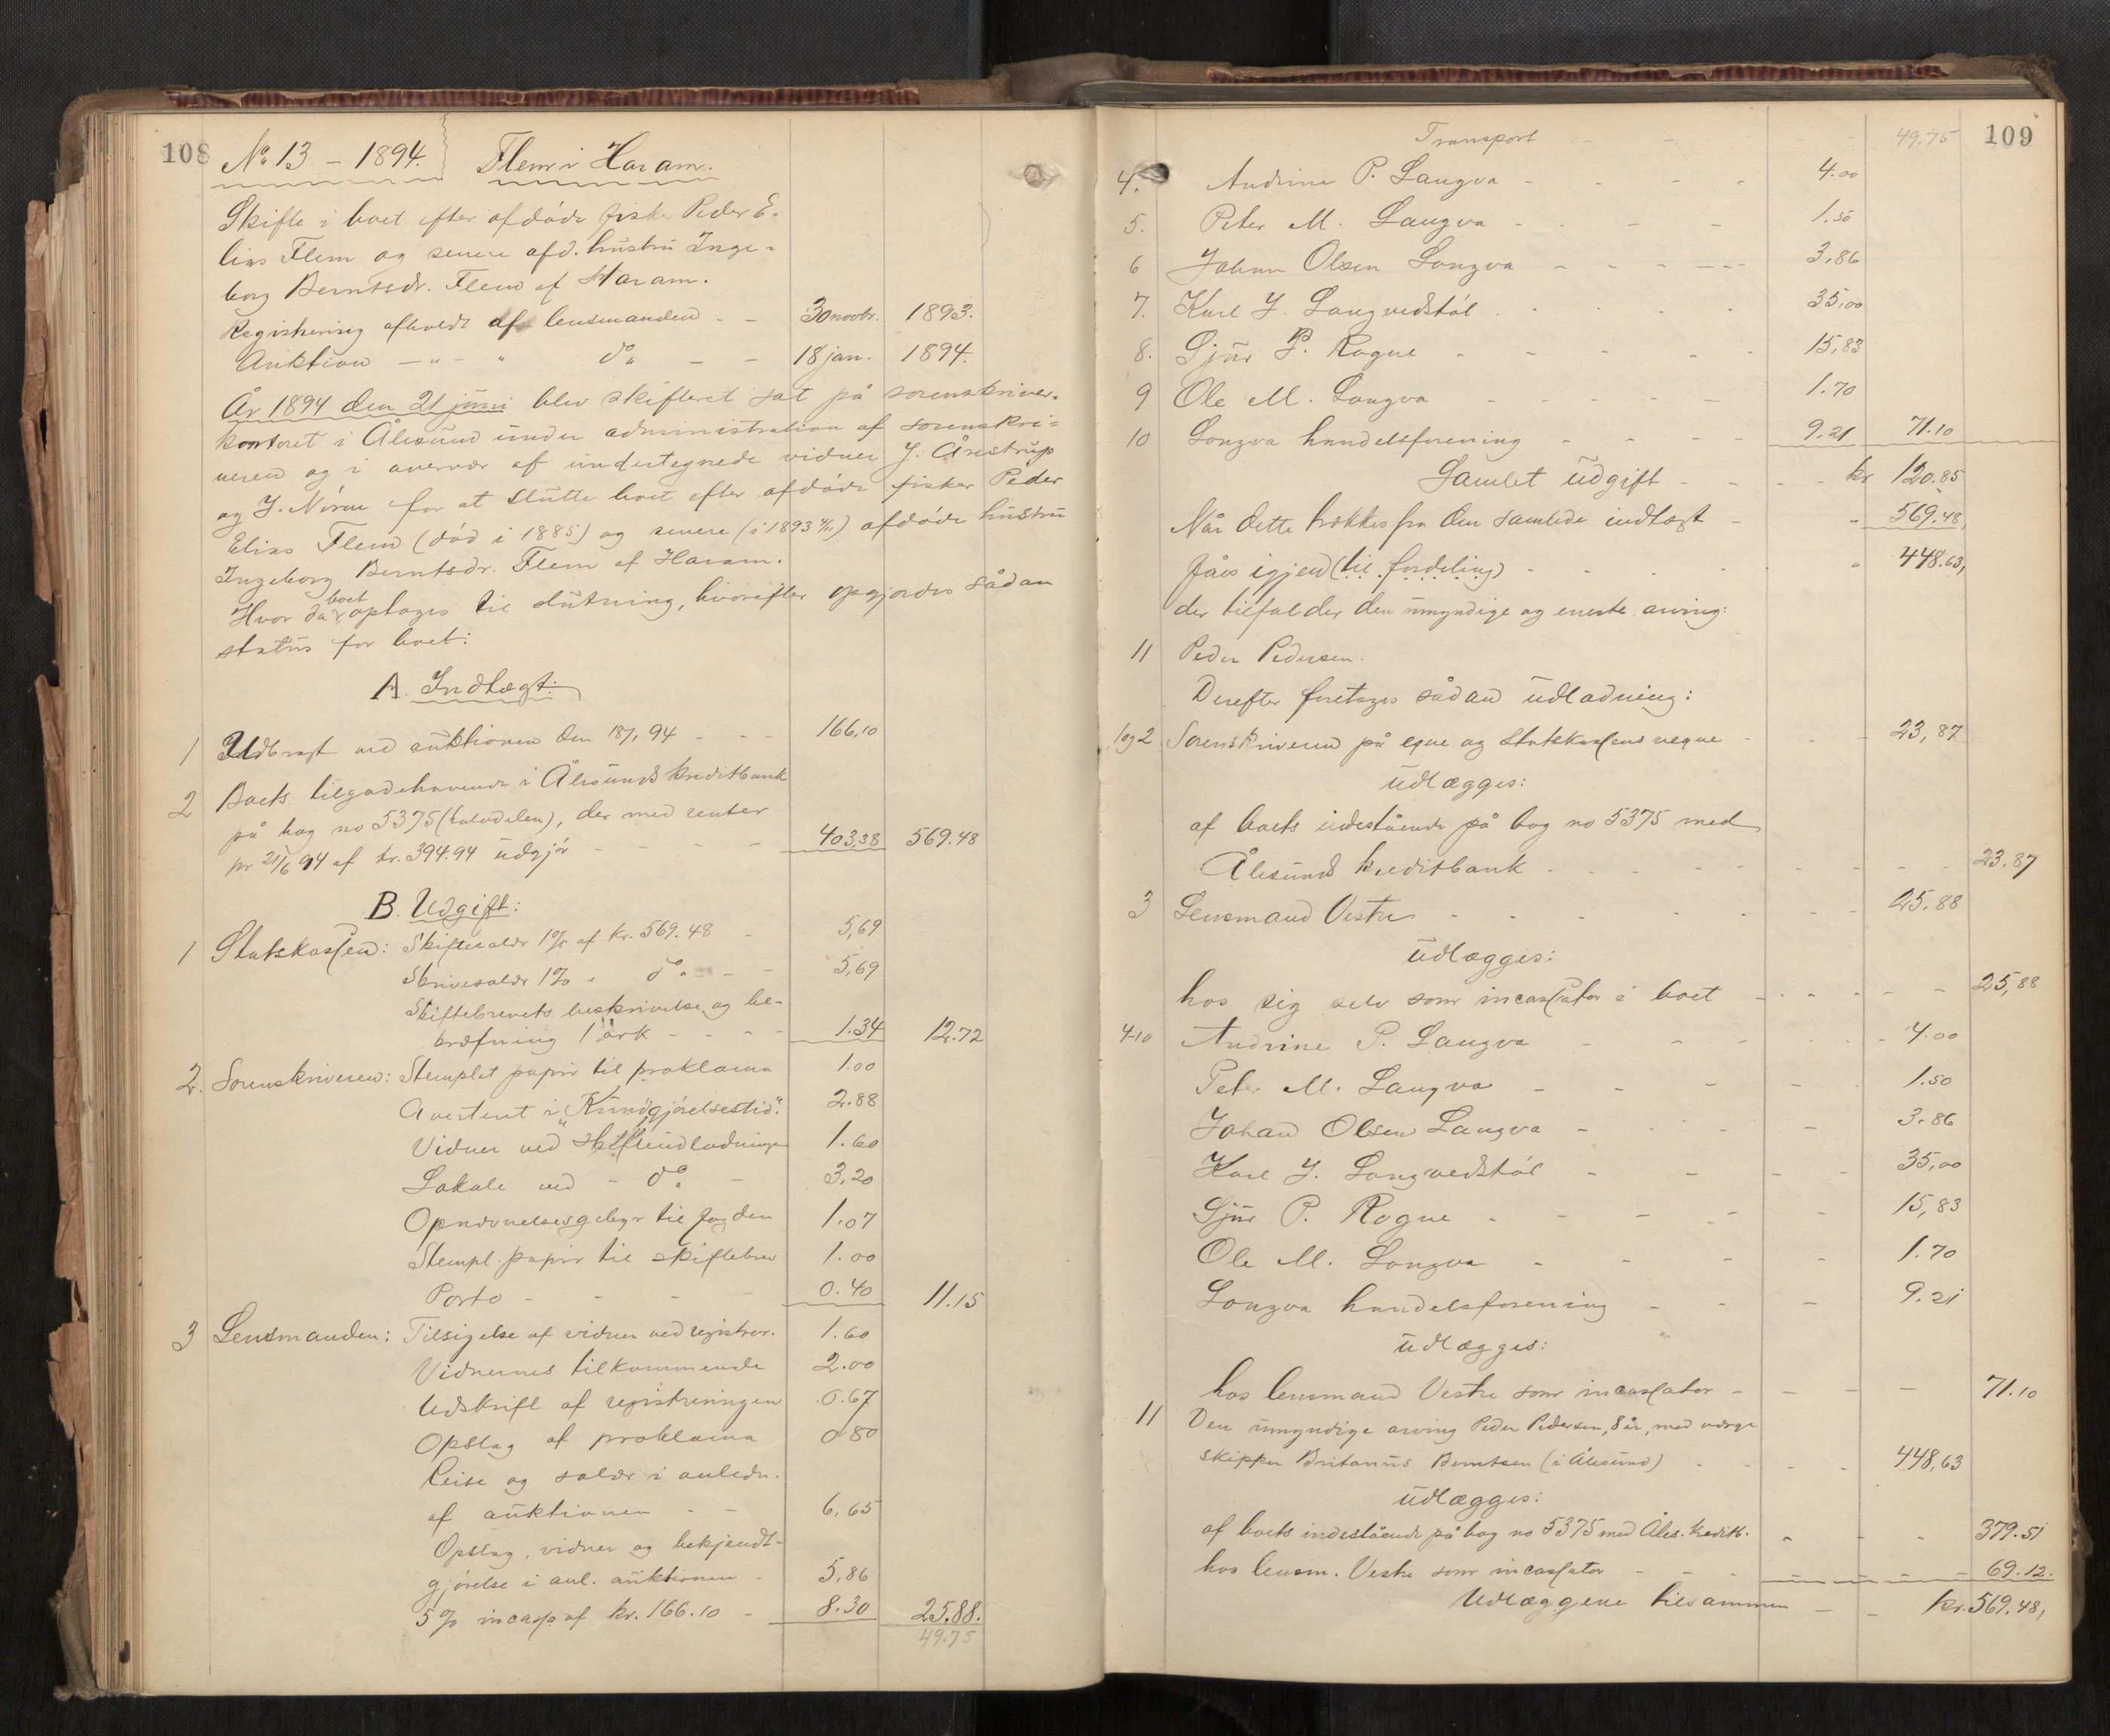 108
No. 13 – 1894. Flem i Haram.
Skifte i boet efter afdøde fisker Peder E-
lias Flem og senere afd. hustru Inge-
borg Berntsdr. Flem af Haram.
Registrering afholdt af lensmanden - - 30 novbr. 1893.
Auktion — " — " do. - - 18 jan. 1894.
År 1894 den 21 juni blev skifteret sat på sorenskriver-
kontoret i Ålesund under administration af sorenskri-
veren og i overvær af undertegnede vidner J. Årestrup
og J. Nörve for at slutte boet efter afdöde fisker Peder
Elias Flem (död i 1885) og senere (i 1893) afdöde hustru
Ingeborg Berntsdr. Flem af Haram.
Hvor da boet optoges til slutning, hvorefter opgjordes sådan
status for boet:
A. Indtægt:
1 Udbragt ved auktionen den 18/1 94 - - - 166,10
2 Boets tilgodehavende i Ålesunds kreditbank
på bog no 5375 (halvdelen), der med renter
pr 21/6 94 af kr. 394.94 udgjör - - - 403,38 569.48
B. Udgift:
1 Statskassen: Skiftesalær 1% af kr. 569.48 - 5,69
Skrivesalær 1% " do. - - 5,69
Skiftebrevets beskrivelse og be-
kræftning 1 ark - - - - 1.34 12.72
2. Sorenskriveren: Stemplet papir til proklama 1.00
Avertent i "Kundgjörelsestid." 2.88
Vidner ved skifteudlodningen 1.60
Lokale ved - do. - 3,20
Opnævnelsesgebyr til fogden 1.07
Stempl. papir til skiftebrev 1.00
Porto - - - - 0.40 11.15
3 Lensmanden: Tilsigelse af vidner ved registrer. 1.60
Vidnernes tilkommende 2.00
Udskrift af registreringen 0.67
Opslag af proklama 0.80
Reise og salær i anledn.
af auktionen - - 6,65
Opslag, vidner og bekjendt-
gjörelse i anl. auktionen - 5,86
5% incasso af kr. 166.10 - 8.30 25.88.
49.75
109
Transport - - 49.75
4. Andrine P. Longva - - - - 4.00
5. Peter M. Longva - - - - 1.50
6 Johan Olsen Longva - - - - 3,86
7. Karl J. Longvedstöl - - - - 35,00
8. Sjur P. Rogne - - - - 15,83
9 Ole M. Longva - - - - 1.70
10 Longva handelsforening - - - - 9.21 71.10
Samlet udgift - - - - kr 120.85
Når dette trækkes fra den samlede indtægt - " 569.48,
fåes igjen (til fordeling) - - - " 448.63,
der tilfalder den umyndige og eneste arving:
11 Peder Pedersen.
Derefter foretoges sådan udlodning:
1 og 2 Sorenskriveren på egne og Statskassens vegne - - - 23,87
udlægges:
af boets indestående på bog no 5375 med
Ålesunds kreditbank - - - - 23.87
3 Lensmand Vestre - - - - 25.88
udlægges:
hos sig selv som incassator i boet - - - - 25,88
4-10 Andrine P. Longva - - - - 4.00
Peter M. Longva - - - - 1.50
Johan Olsen Longva - - - - 3.86
Karl J. Longvedstöl - - - - 35,00
Sjur P. Rogne - - - - 15,83
Ole M. Longva - - - - 1.70
Longva handelsforening - - - 9.21
udlægges:
hos lensmand Vestre som incassator - - - - 71.10
11 Den umyndige arving Peder Pedersen, 8 år, med værge
skipper Britanus Berntsen (i Ålesund) - - - - 448,63
udlægges:
af boets indestående på bog no 5375 med Åles. kreditb. - - - 379.51
hos lensm. Vestre som incassator - - - - 69.12.
Udlæggene tilsammen - - kr. 569.48,